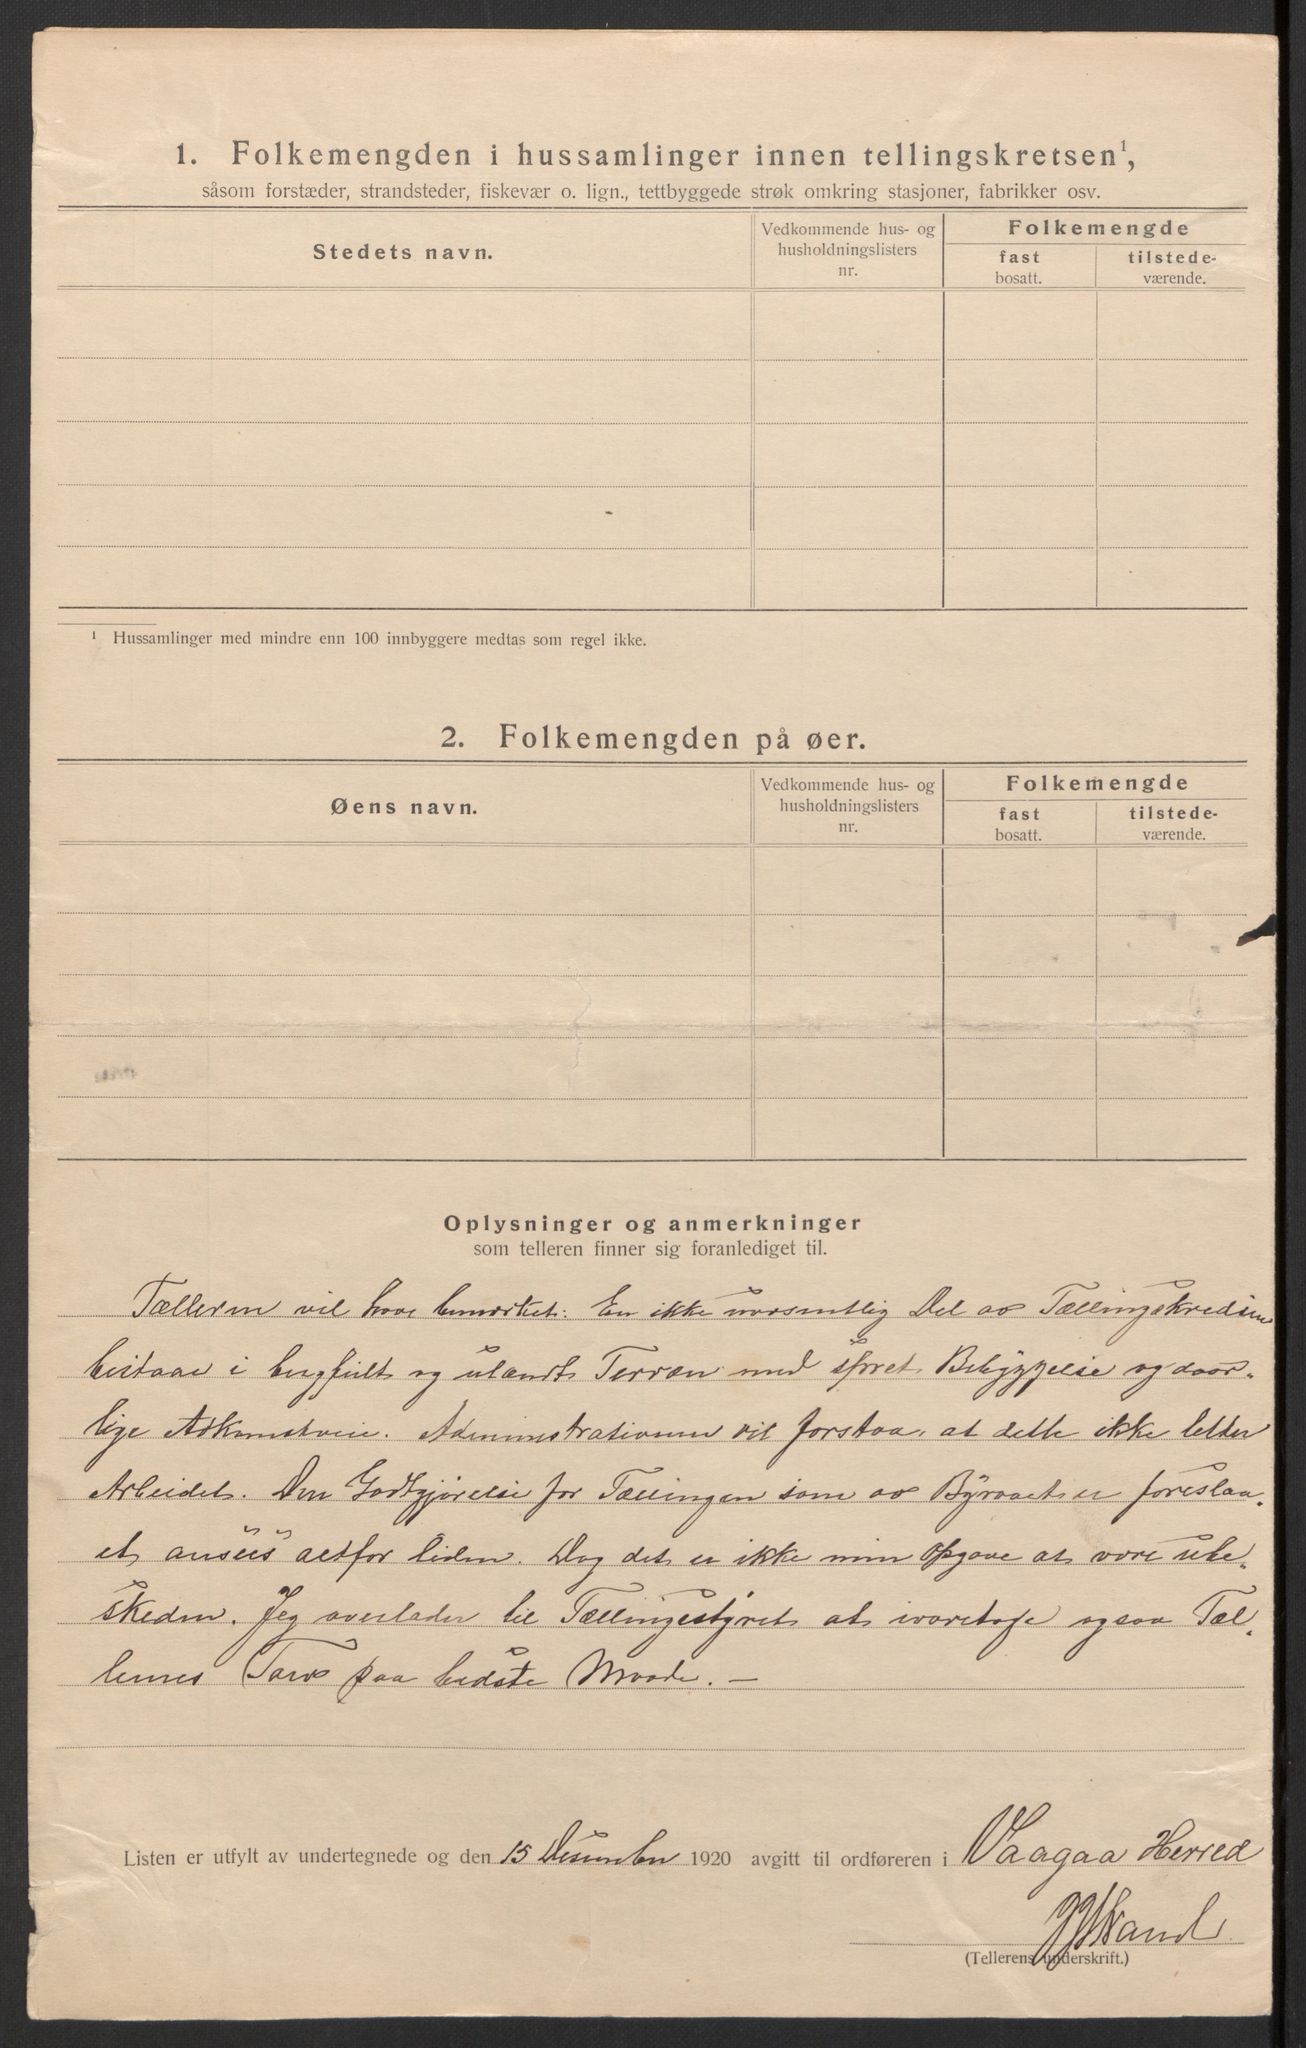 1. Folkemengden i hussamlinger innen tellingskretsen¹,
såsom forstæder, strandsteder, fiskevær o. lign., tettbyggede strøk omkring stasjoner, fabrikker osv.
Stedets navn.
Vedkommende hus- og
husholdningslisters
nr.
Folkemengde
fast
bosatt.
tilstede-
værende.
¹ Hussamlinger med mindre enn 100 innbyggere medtas som regel ikke.
2. Folkemengden på øer.
Øens navn.
Vedkommende hus- og
husholdningslisters
nr.
Folkemengde
fast
bosatt.
tilstede-
værende.
Oplysninger og anmerkninger
som telleren finner sig foranlediget til.
Tælleren vil have bemærket: En ikke uvæsentlig Del av Tællingskredsen
bestaar i bergfuldt og ulændt Terræn med spret Bebyggelse og daar-
lige Adkomstveie. Administrationen vil forstaa, at dette ikke letter
Arbeidet. Den Godtgjørelse for Tællingen som av Byraaet er foreslaa-
et ansees altfor liden. Dog det er ikke min Opgave at være ube-
skeden. Jeg overlader til Tællingsstyret at ivaretage ogsaa Tæl-
lernes Tarv paa bedste Maade. —
Listen er utfylt av undertegnede og den 15 Desember 1920 avgitt til ordføreren i Vaagaa Herred
Strand
(Tellerens underskrift.)